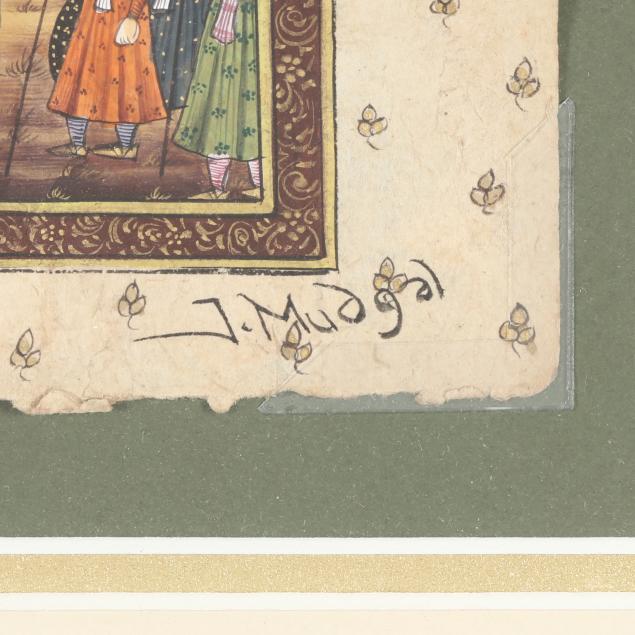 J. Mudgal